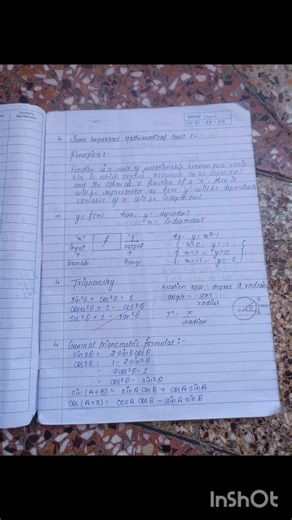 DATE
* Some Important Mathematical tools :-
Function :
Function is a rule of relationship between two varia
ble in which one is assumed to be dependent
and the other is a function of a "x" this is
will be represented as here y will be dependent
variable of x will be independent
⇒ y = f(x) here y = dependent
x = independent
"x" f "y"
input output
Domain Range
eg - y = x²-1
x=0 y=-1
x=1
* Trigonometry
sin²θ + cos²θ = 1
Relation b/w degree & radian
angle = arc
radius
1° = π
radian
* General trigonometric formulas :-
sin2θ = 2sinθcosθ
cos2θ = 1 - 2sin²θ
= 2cos²θ - 1
= cos²θ - sin²θ
sin (A+B) = sinA cosB + cosA sinB
cos (A+B) = cosA cosB - sinA sinB
InShOt